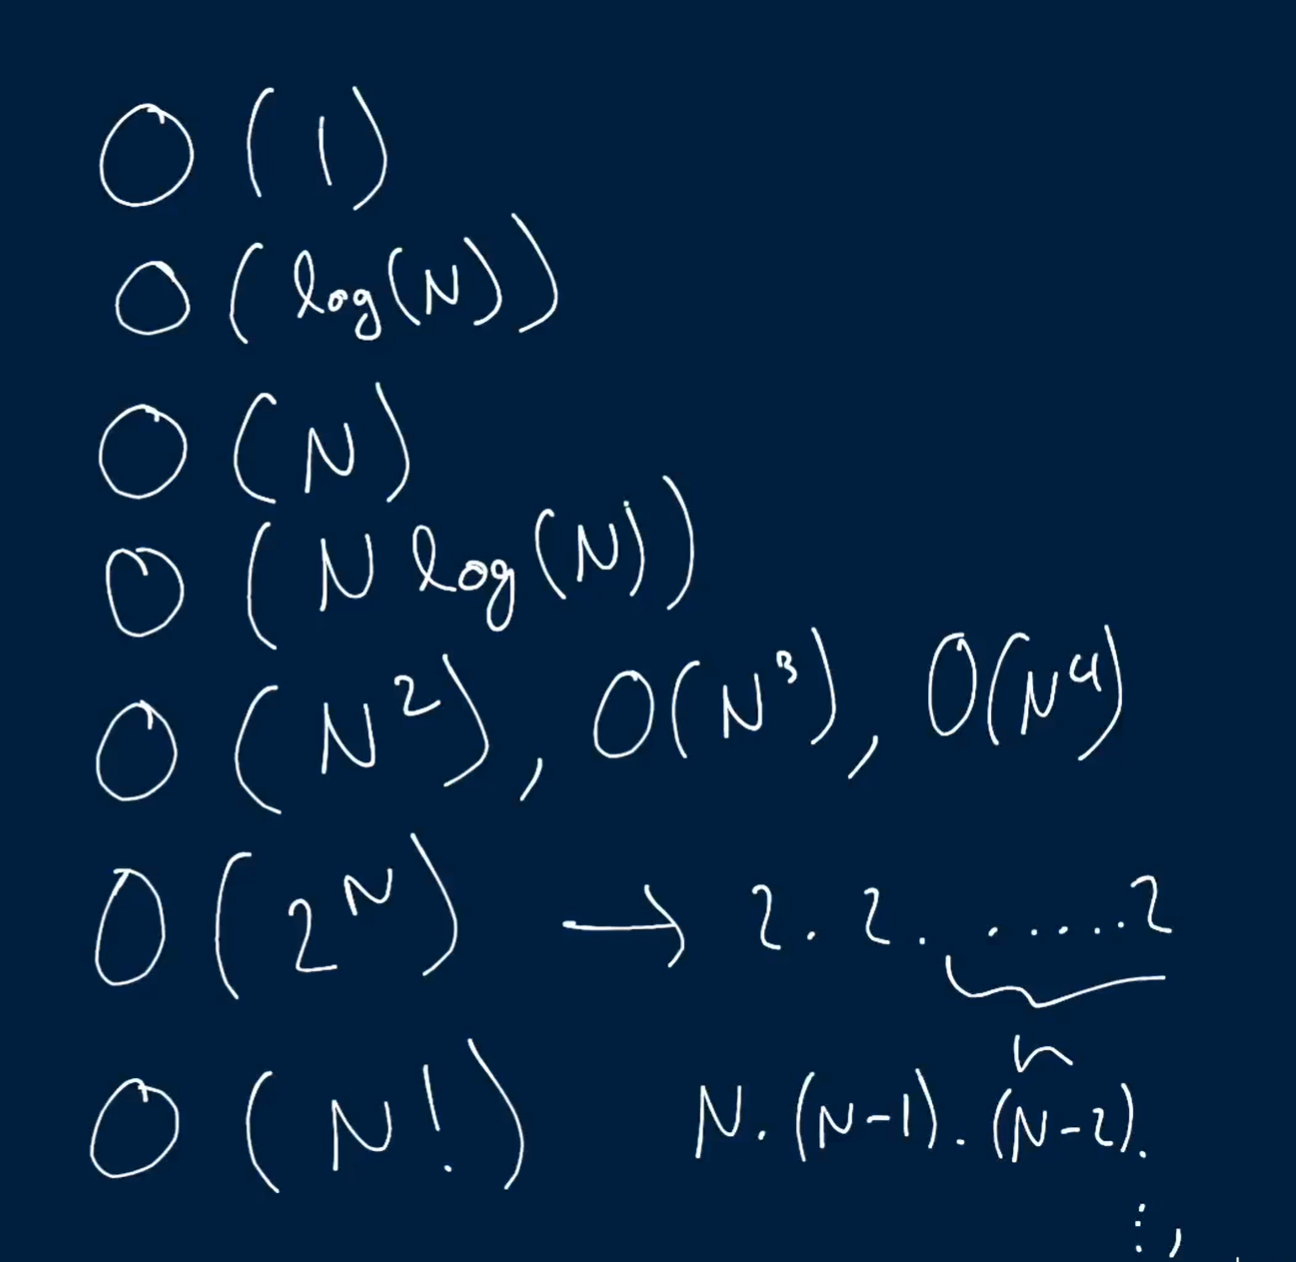 O(1)
O(log(N))
O(N)
O(N log(N))
O(N²), O(N³), O(N⁴)
O(2ᴺ) → 2.2. ......2
n
O(N!) N.(N-1).(N-2).
⋮,